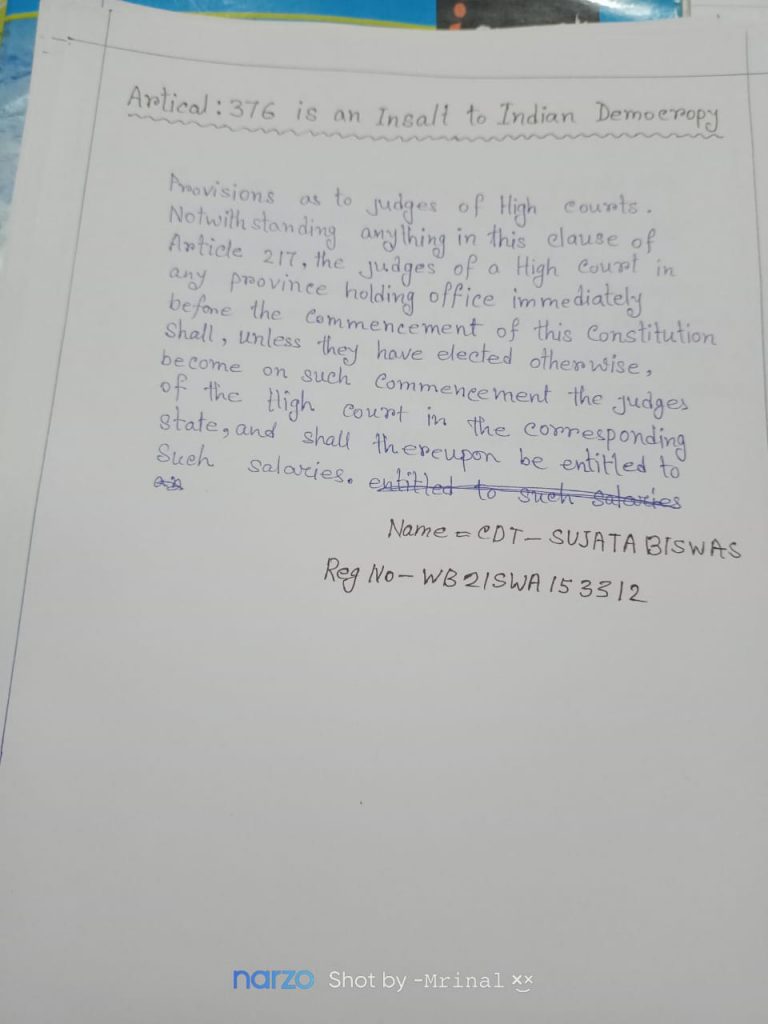 Artical : 376 is an Insalt to Indian Democropy
Provisions as to judges of High courts.
Notwithstanding anything in this clause of
Article 217, the judges of a High Court in
any province holding office immediately
before the Commencement of this Constitution
Shall, unless they have elected otherwise,
become on such Commencement the judges
of the High court in the corresponding
state, and shall thereupon be entitled to
Such salaries. entitled to such salaries
Name = CDT - SUJATA BISWAS
Reg No - WB21SWA153312
narzo Shot by -Mrinal